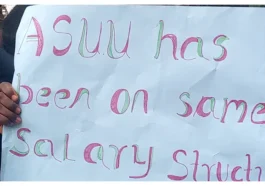 ASUU has
been on same
Salary Struct